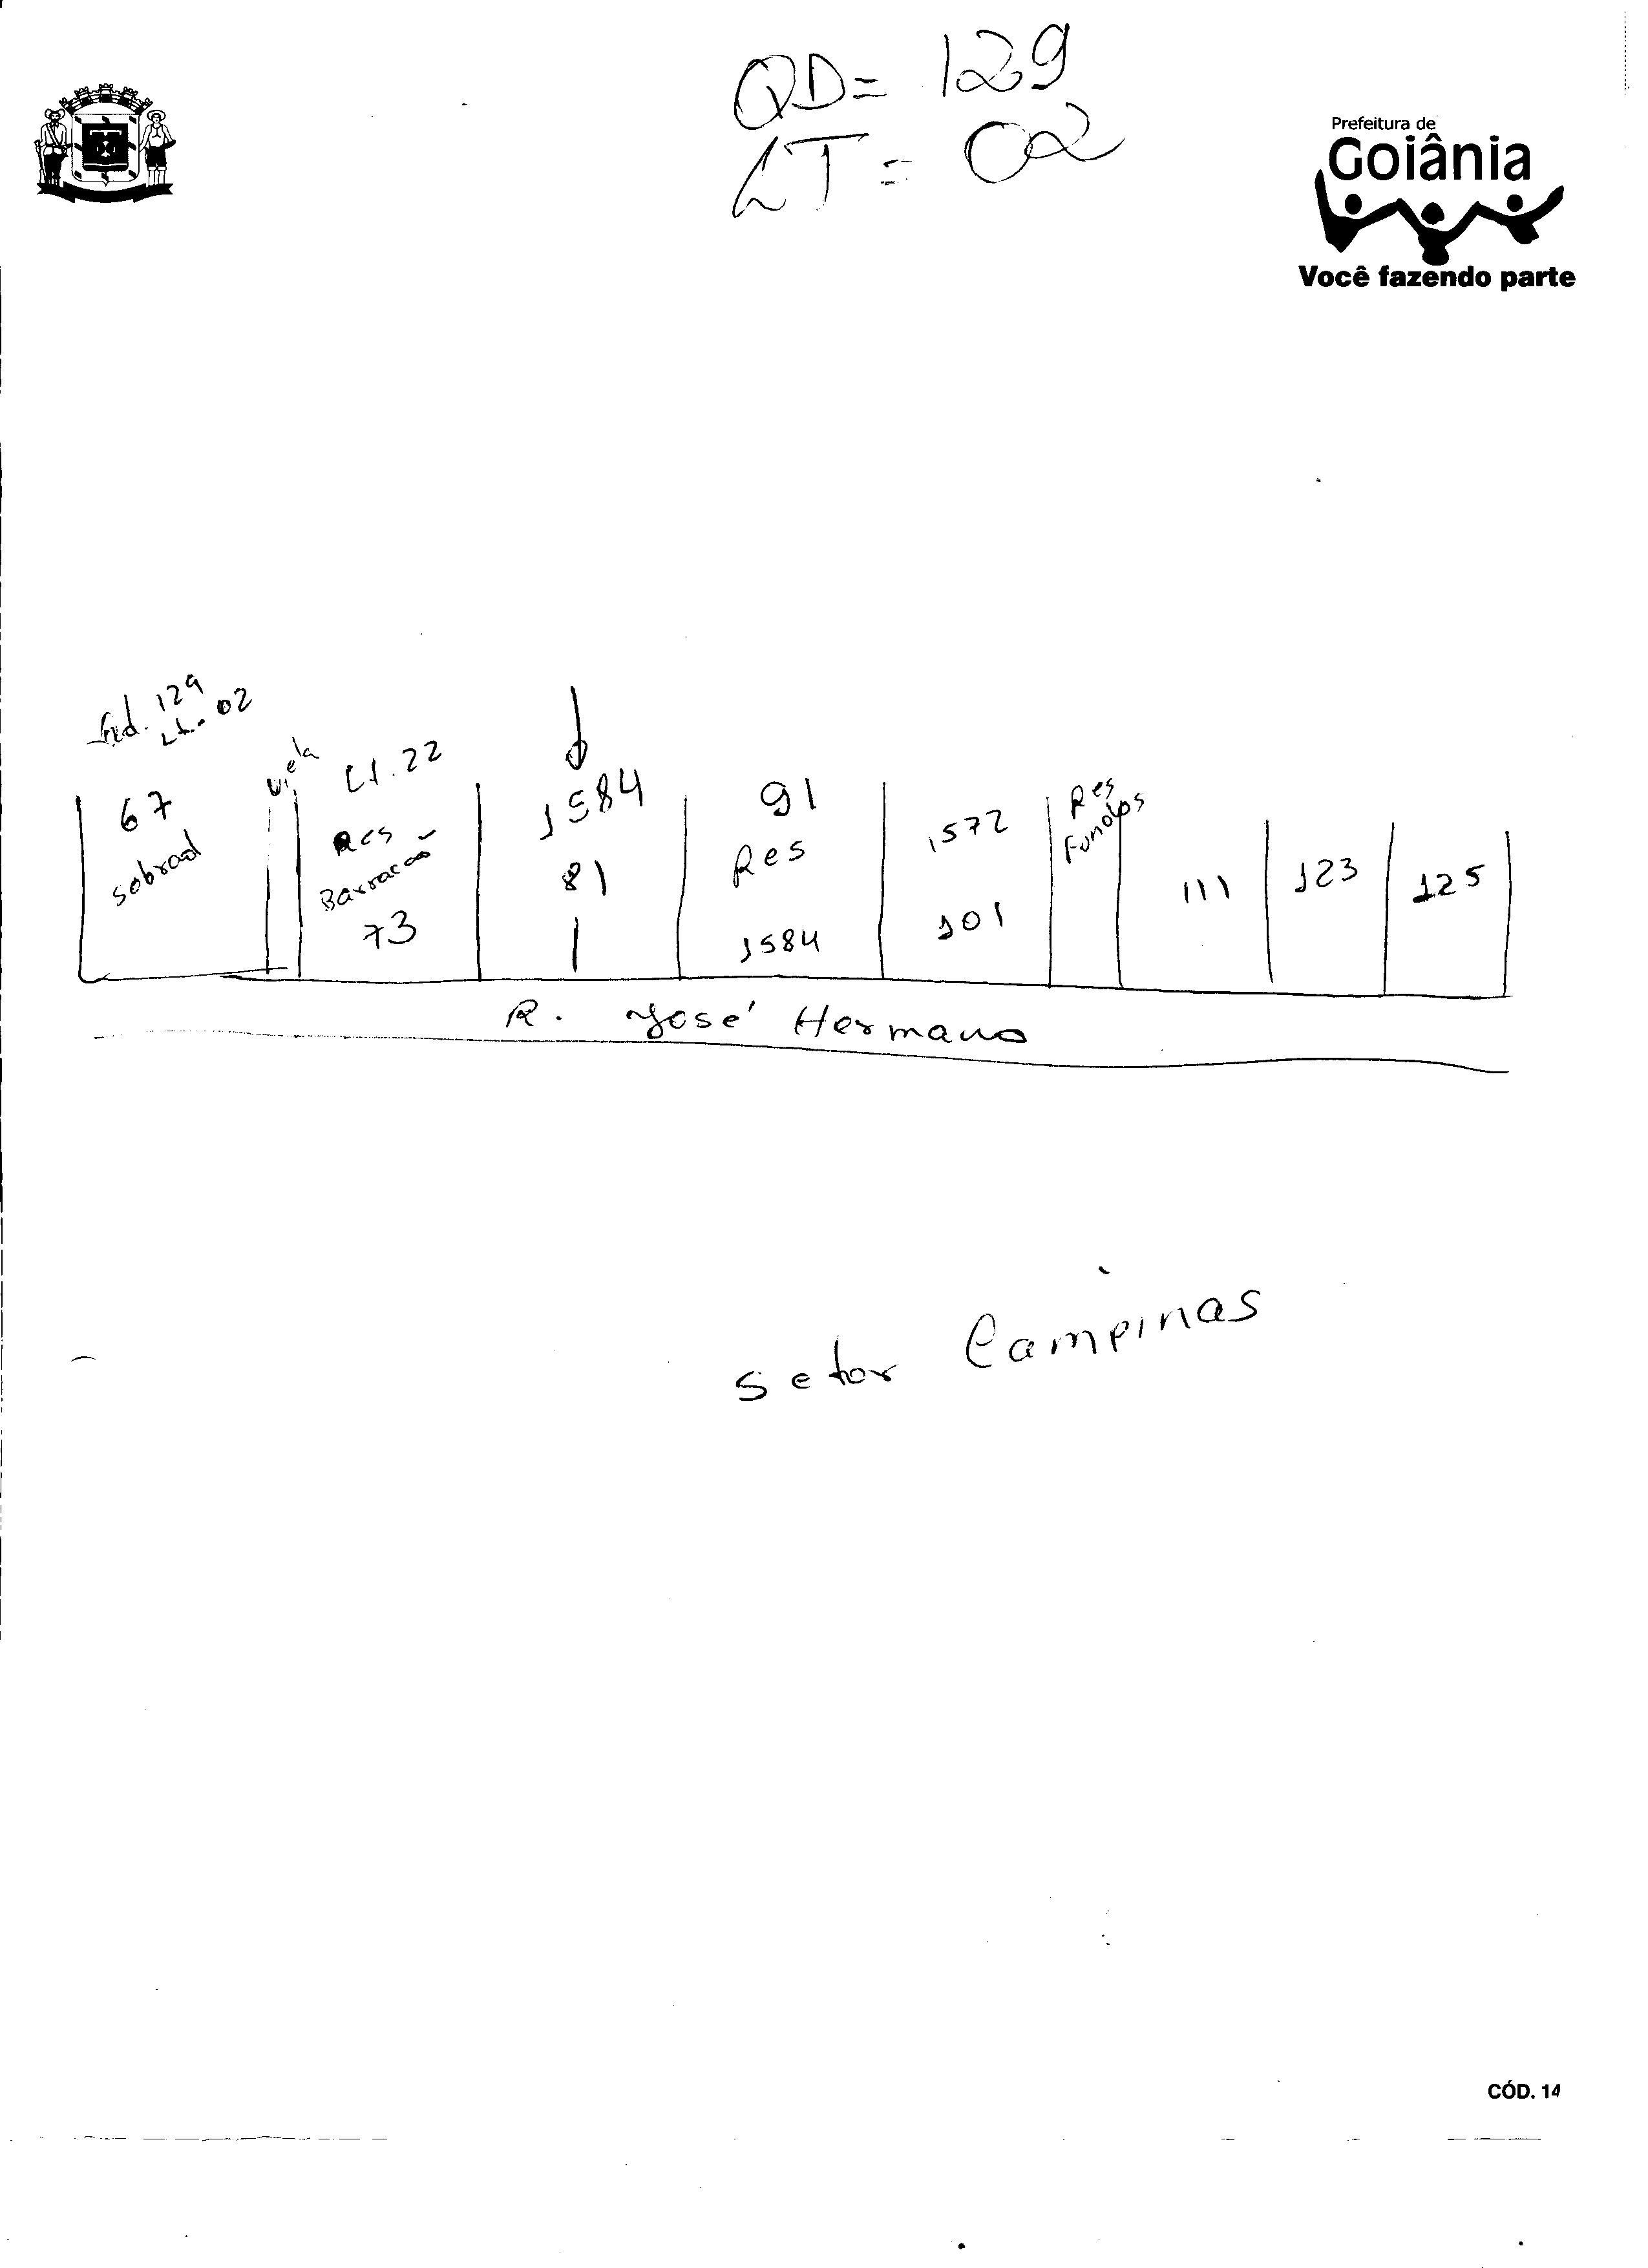 QD= 129
LT= 02
Prefeitura de
Goiânia
Você fazendo parte
Qd. 129
Lt. 02
67
sobrad
viela
Lt. 22
Res
Barracão
73
1584
81
91
Res
1584
1572
101
Res
Fundos
111
123
125
R. José Hermano
Setor Campinas
CÓD. 14